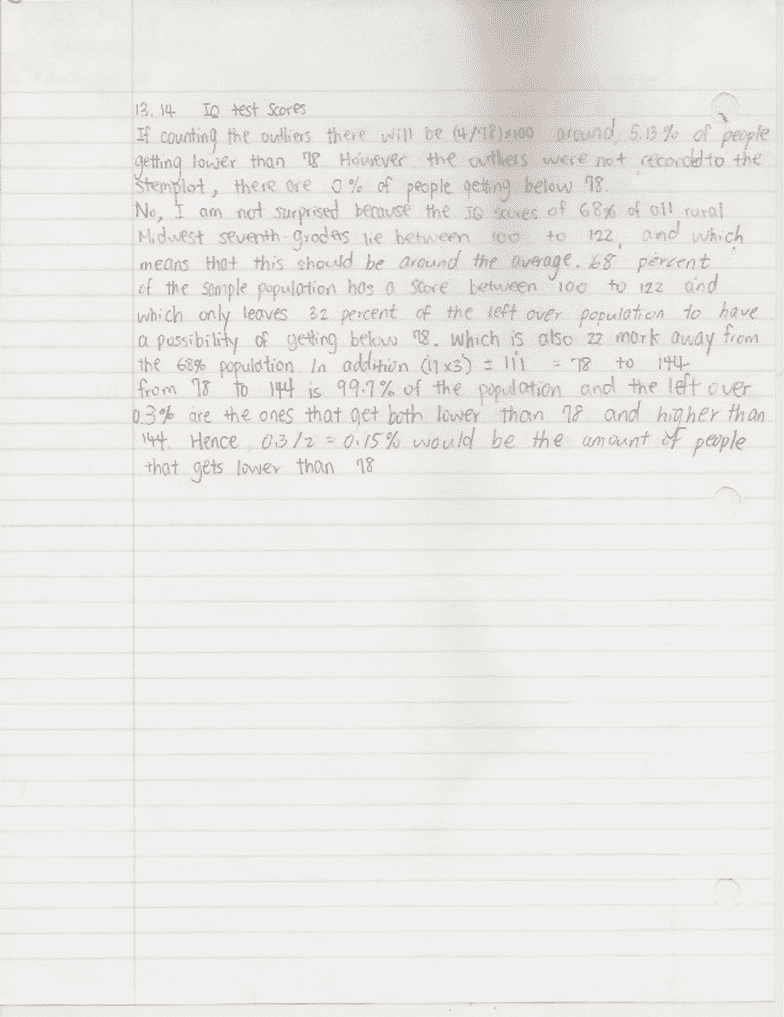 13.14 IQ test Scores
If counting the outliers there will be (4/78)x100 around 5.13% of people
getting lower than 78. However, the outliers were not recorded to the
Stemplot, there are 0% of people getting below 78.
No, I am not surprised because the IQ scores of 68% of all rural
Midwest seventh-graders lie between 100 to 122, and which
means that this should be around the average. 68 percent
of the sample population has a score between 100 to 122 and
which only leaves 32 percent of the left over population to have
a possibility of getting below 78. which is also 22 mark away from
the 68% population. In addition (11x3) ± 111 = 78 to 144
from 78 to 144 is 99.7% of the population and the left over
0.3% are the ones that get both lower than 78 and higher than
144. Hence, 0.3/2 = 0.15% would be the amount of people
that gets lower than 78